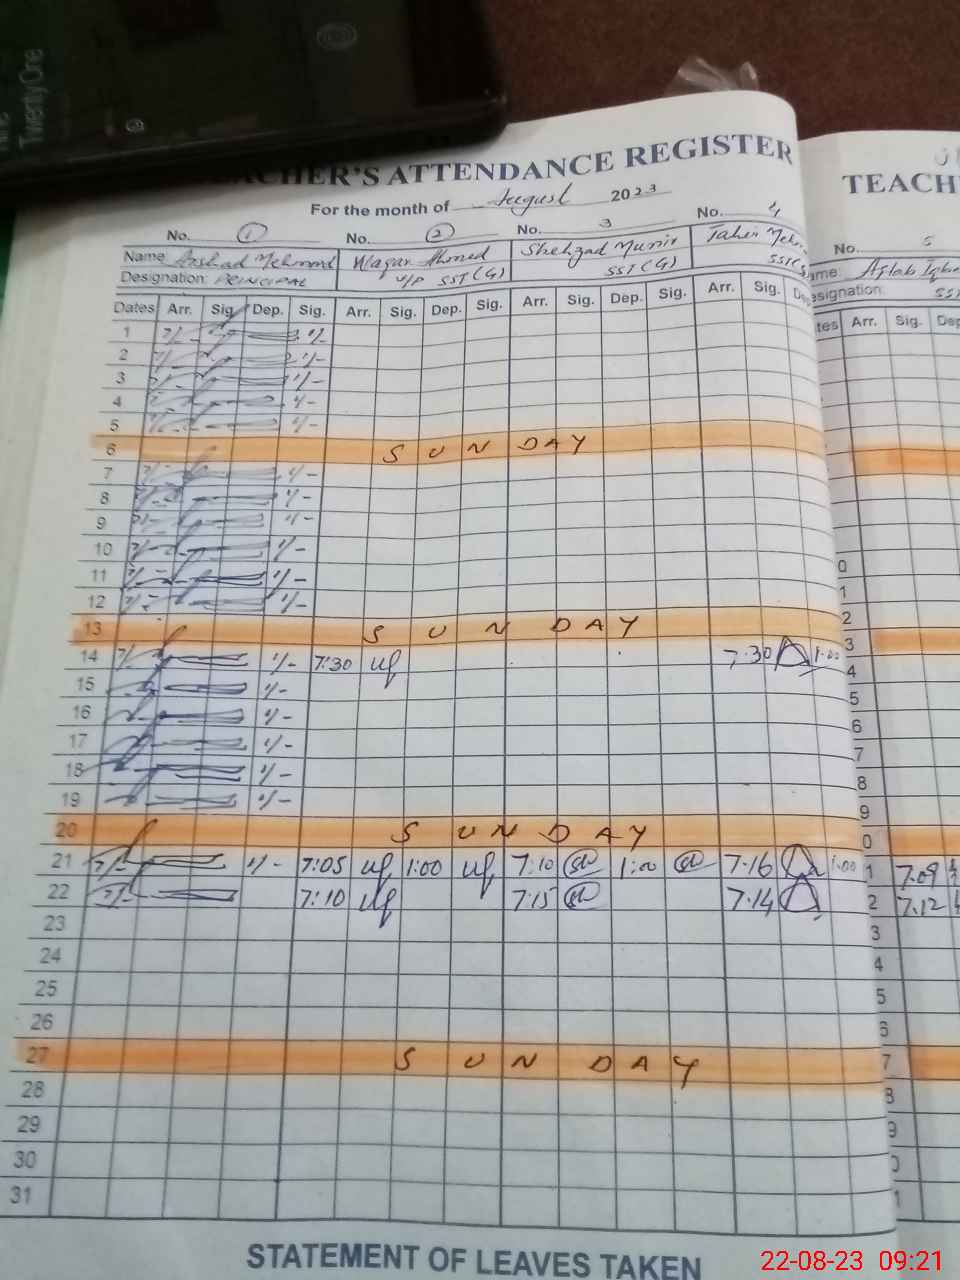 TwentyOne
TEACHER'S ATTENDANCE REGISTER
For the month of August 2023
No. 1 No. 2 No. 3 No. 4
Name Arshad Mehmood Waqar Ahmed Shehzad Munir Tahir
Designation: PRINCIPAL V/P SST (G) SST (G) SST (G)
Dates Arr. Sig. Dep. Sig. Arr. Sig. Dep. Sig. Arr. Sig. Dep. Sig. Arr. Sig. Dep
1 7/- 1/-
2 7/- 1/-
3 7/- 1/-
4 7/- 1/-
5 7/- 1/-
6 SUNDAY
7 7/- 1/-
8 7/- 1/-
9 7/- 1/-
10 7/- 1/-
11 7/- 1/-
12 7/- 1/-
13 SUNDAY
14 7/- 1/- 7:30 7.30 1.00
15 1/-
16 1/-
17 1/-
18 1/-
19 1/-
20 SUNDAY
21 7/- 1/- 7:05 1:00 7:10 1:00 7.16 1.00
22 7/- 7:10 7:15 7.14
23
24
25
26
27 SUNDAY
28
29
30
31
STATEMENT OF LEAVES TAKEN
TEACH
No. 5
ame: Aftab
esignation: SS
tes Arr. Sig. Dep
0
1
2
3
4
5
6
7
8
9
0
1 7.09
2 7.12
3
4
5
6
7
8
9
0
1
22-08-23 09:21